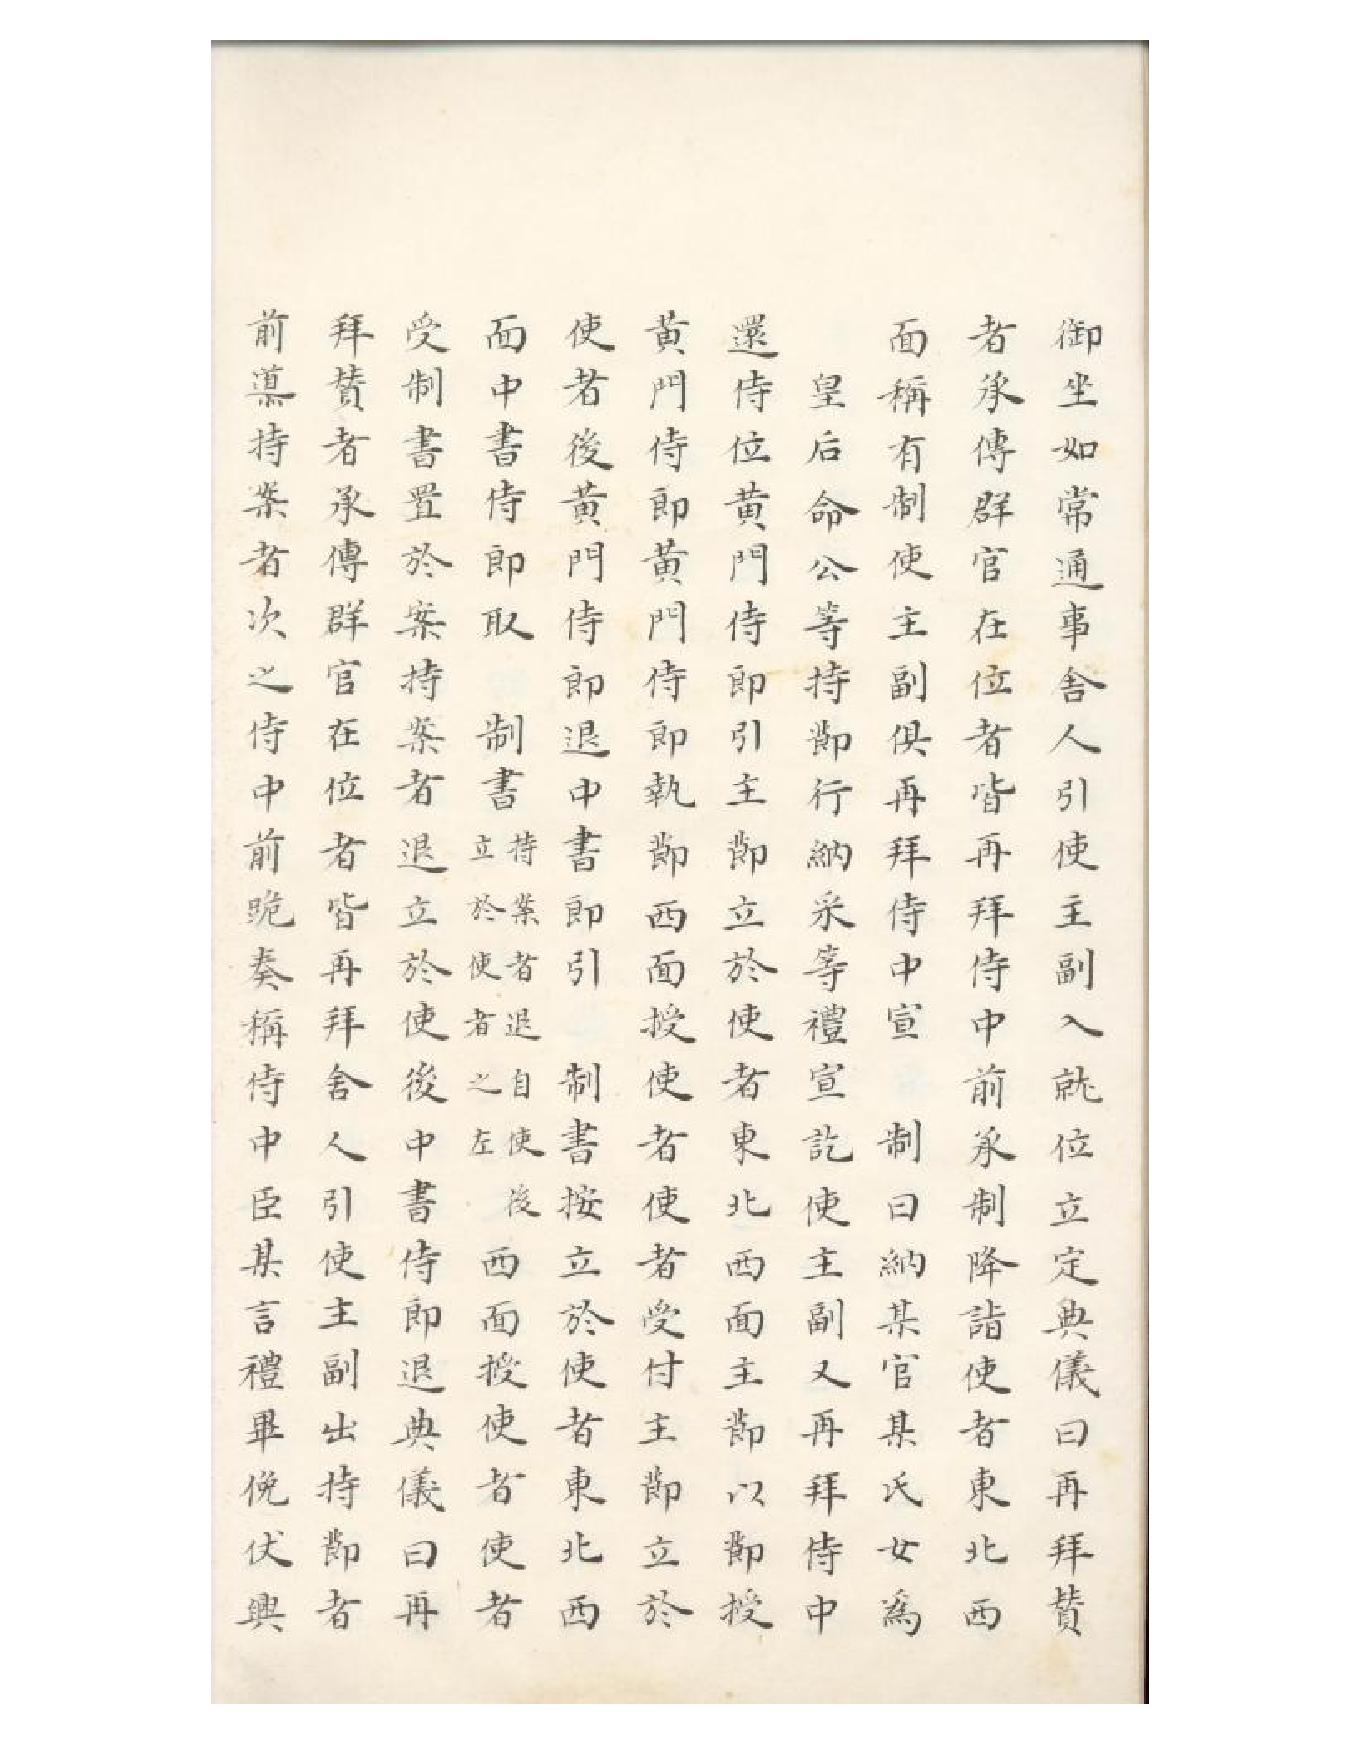 御坐如常通事舎人引使主副入就位立定典儀曰再拜賛
者承傳群官在位者皆再拜侍中前承制降詣使者東北西
面稱有制使主副俱再拜侍中宣　制曰納某官某氏女為
皇后命公等持節行納采等禮宣訖使主副又再拜侍中
還侍位黄門侍郎引主節立於使者東北西面主節以節授
黄門侍郎黄門侍郎執節西面授使者使者受付主節立於
使者後黄門侍郎退中書郎引　制書按立於使者東北西
面中書侍郎取　制書持案者退自使後立於使者之左西面授使者使者
受制書置於案持案者退立於使後中書侍郎退典儀曰再
拜賛者承傳群官在位者皆再拜舎人引使主副出持節者
前導持案者次之侍中前跪奏稱侍中臣某言禮畢俛伏興